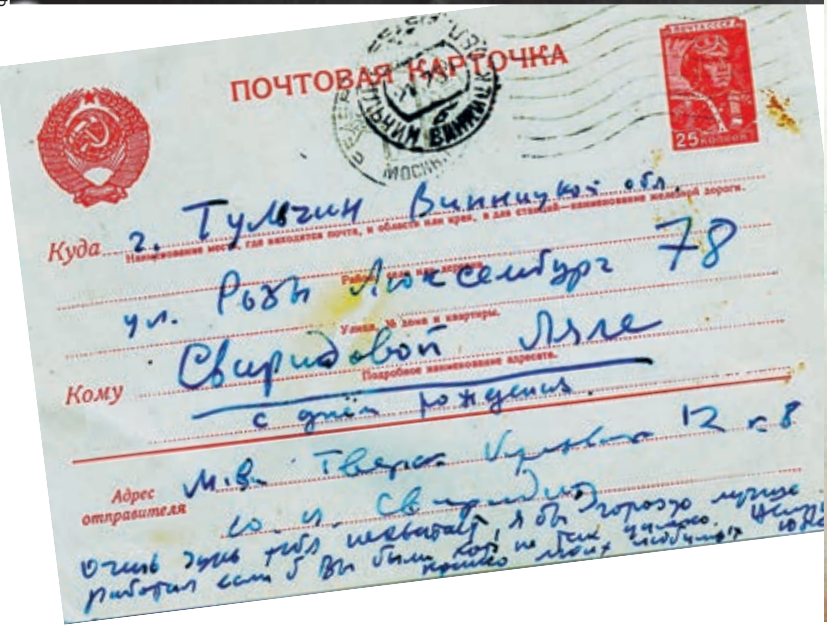 ПОЧТОВАЯ КАРТОЧКА
ПОЧТА СССР
25 КОПЕЕК
МОСКВА
Куда г. Тульчин Винницкой обл.
Наименование места, где находится почта, и области или края, а для станций—наименование железной дороги.
Район, село или деревня.
ул. Розы Люксембург 78
Улица, № дома и квартиры.
Кому Свиридовой Ляле
Подробное наименование адресата.
с днём рождения.
Адрес
отправителя
М-ва Тверск 12 к 8
Ю. Свиридов
очень тебя нехватает, я бы гораздо лучше
работал если б Вы были хоть не так далеко.
моих любимых